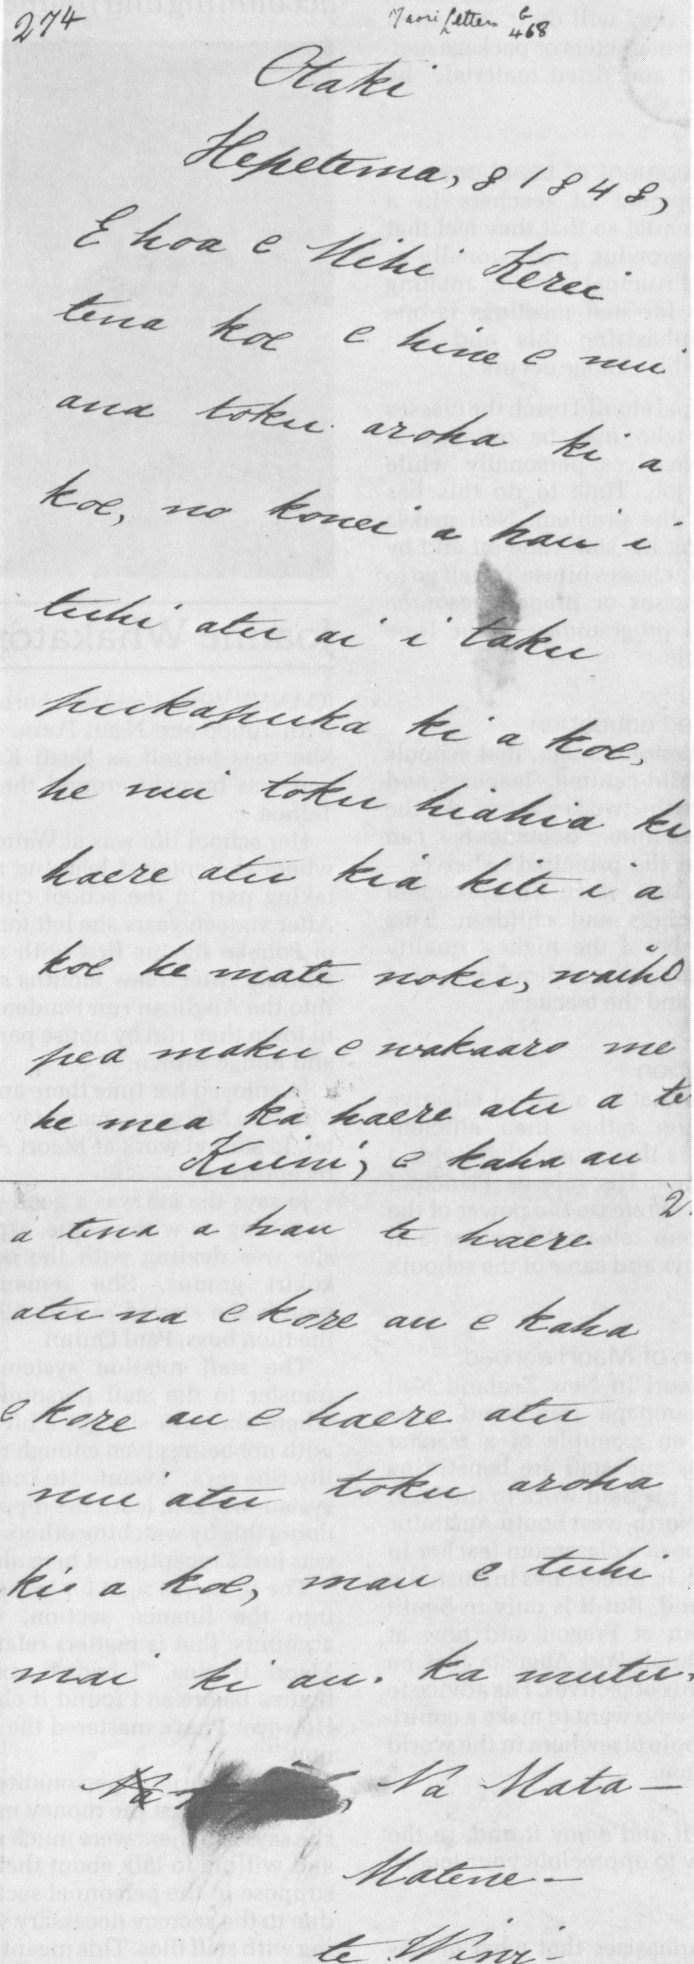 274
Maori Letters G 468
Otaki
Hepetema, 8 1848,
E hoa e Mihi Kerei
tena koe e hine e nui
ana toku aroha ki a
koe, no konei a hau i
tuhi atu ai i taku
pukapuka ki a koe,
he nui toku hiahia ki
haere atu kia kite i a
koe he mate noku, waiho
pea maku e wakaaro me
he mea ka haere atu a te
Kuini, e kaha au
2.
a tena a hau te haere
atu na e kore au e kaha
e kore au e haere atu
nui atu toku aroha
ki a koe, mau e tuhi
mai ki au. Ka mutu.
Na Na Mata—
Matene—
te Wiwi—